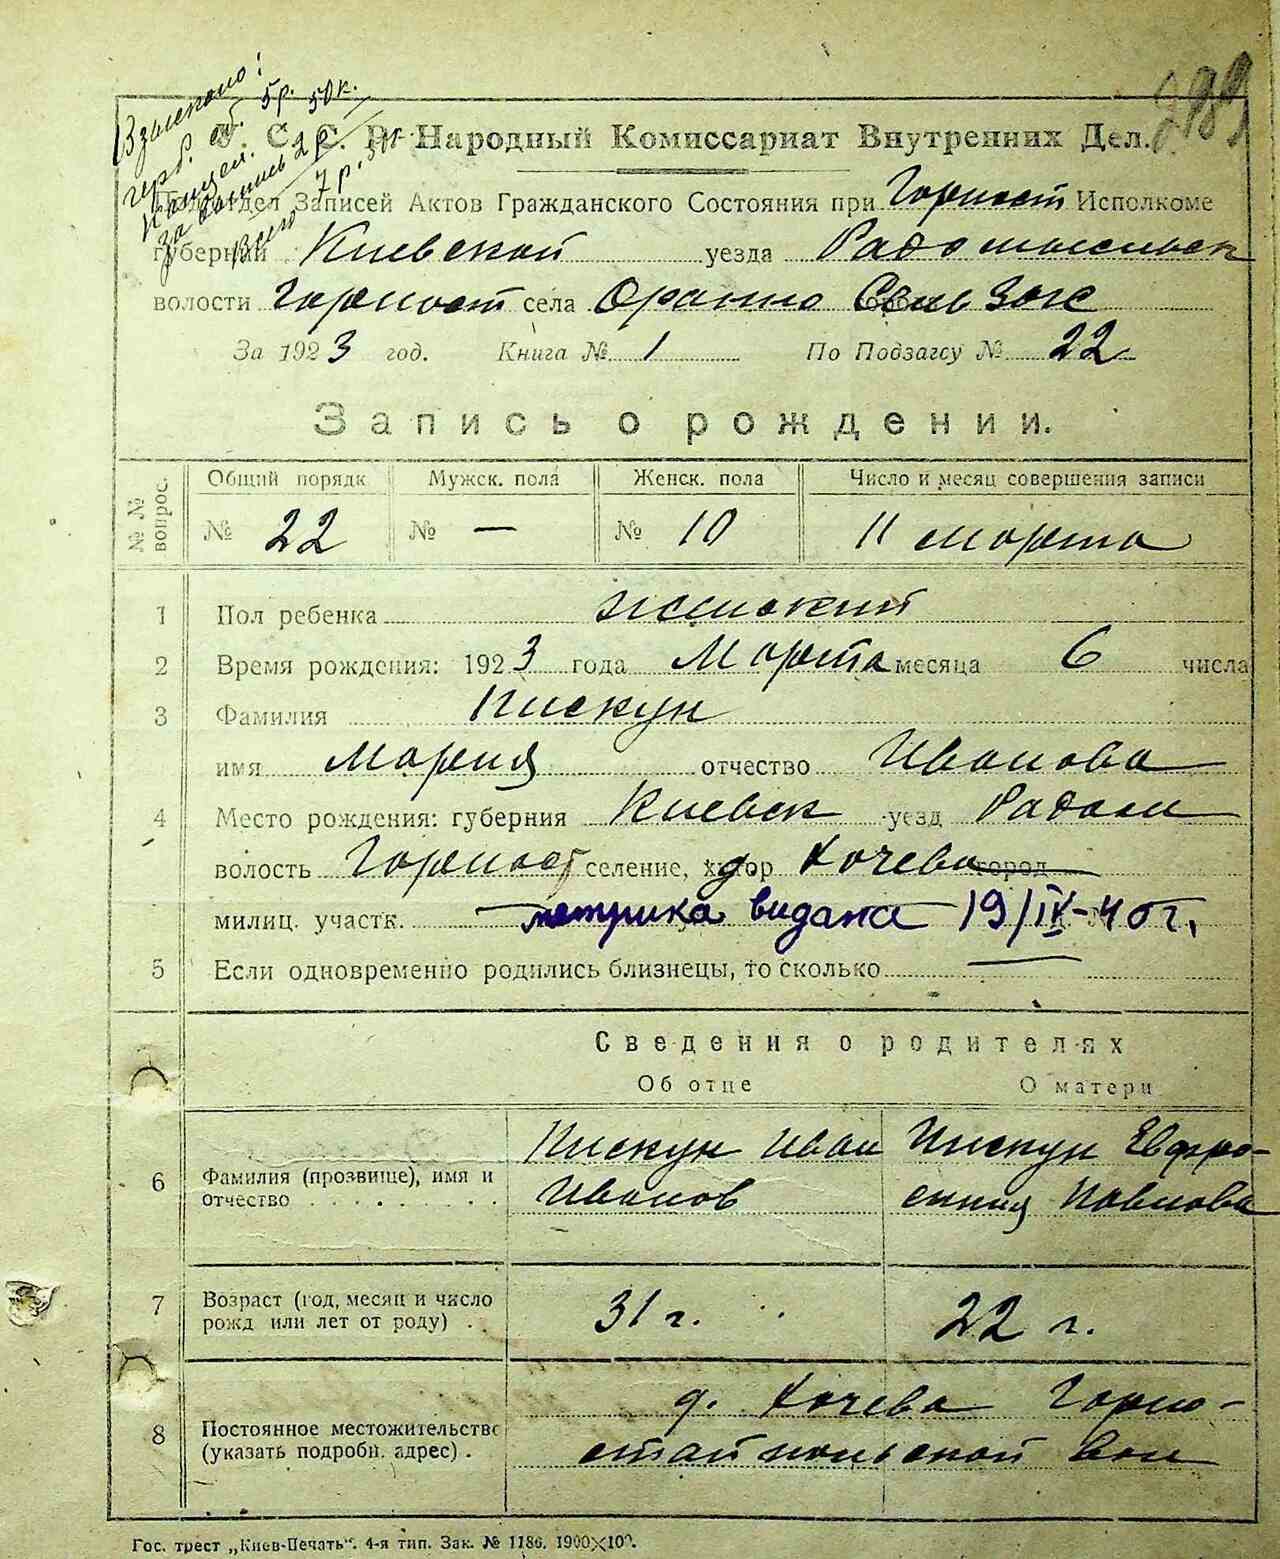 Взыскано:
герб. сб. 5р. 50к.
Канцел.
за запись 2р
Всего 7р. 50к
289
У. С. С. Р. Народный Комиссариат Внутренних Дел.
Подотдел Записей Актов Гражданского Состояния при Горност Исполкоме
губернии Киевской уезда Радомысльск
волости Горност села Оранно Сель Загс
За 1923 год. Книга № 1 По Подзагсу № 22
Запись о рождении.
№ № вопрос. Общий порядк Мужск. пола Женск. пола Число и месяц совершения записи
№ 22 № — № 10 11 марта
1 Пол ребенка женский
2 Время рождения: 1923 года Марта месяца 6 числа
3 Фамилия Пискун
имя Мария отчество Иванова
4 Место рождения: губерния Киевск уезд Радом
волость Горност селение, хутор д. Кочева город
милиц. участк. — метрика видана 19/IV-40г.
5 Если одновременно родились близнецы, то сколько —
Сведения о родителях
Об отце О матери
Пискун Иван Пискун Евфро-
6 Фамилия (прозвище), имя и
отчество . . . . . . . Иванов синия Павлова
7 Возраст (год, месяц и число
рожд или лет от роду) . 31 г. 22 г.
д. Кочева Горно-
8 Постоянное местожительство
(указать подробн. адрес) . стайпольской вол
Гос. трест „Киев-Печать“. 4-я тип. Зак. № 1186. 1900×100.